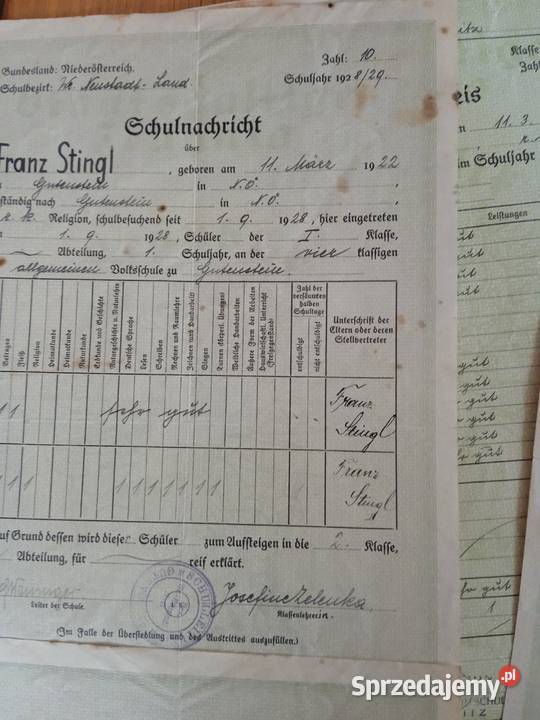 Bundesland: Niederösterreich.
Zahl: 10.
Schulbezirk: Wr. Neustadt-Land.
Schuljahr 1928/29.
Schulnachricht
über
Franz Stingl, geboren am 11. März 1922
Gutenstein in N.Ö.,
ständig nach Gutenstein in N.Ö.,
r. k. Religion, schulbesuchend seit 1. 9. 1928, hier eingetreten
1. 9. 1928, Schüler der I. Klasse,
Abteilung, 1. Schuljahr, an der vier klassigen
allgemeinen Volksschule zu Gutenstein.
Betragen
Fleiß
Religion
Heimatkunde
Naturkunde
Erdkunde und Geschichte
Naturgeschichte u. Naturlehre
Deutsche Sprache
Lesen
Schreiben
Rechnen und Raumlehre
Zeichnen und Handarbeit
Singen
Turnen (körperl. Übungen)
Weibliche Handarbeiten
Äußere Form der Arbeiten
Zahl der versäumten halben Schultage
entschuldigt
nicht entschuldigt
Unterschrift der Eltern oder deren Stellvertreter
1 1 sehr gut
Franz
Stingl
1 1 1 1 1 1 1 1
Franz
Stingl
auf Grund dessen wird dieser Schüler zum Aufsteigen in die 2. Klasse,
Abteilung, für reif erklärt.
Leiter der Schule.
Josefine Zelenka.
Klassenlehrerin.
(Im Falle der Übersiedlung und des Austrittes auszufüllen.)
Klasse
Zahl
11. 3.
im Schuljahr
Leistungen
gut
gut
gut
gut
sehr gut
1
Sprzedajemy.pl